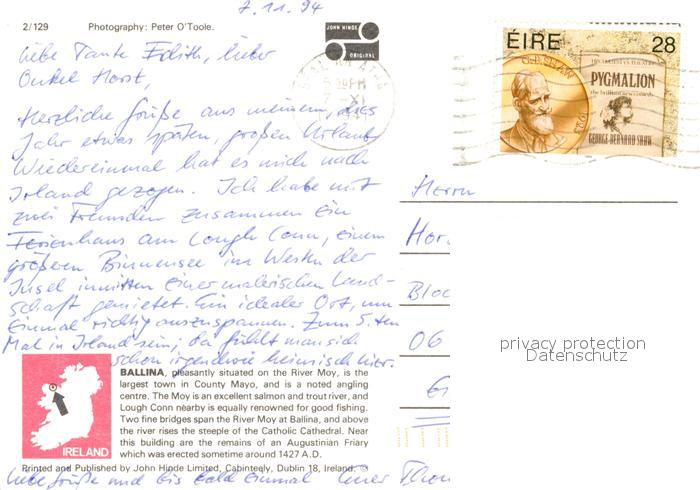 7.11.94
2/129 Photography: Peter O'Toole.
JOHN HINDE
ORIGINAL
Liebe Tante Edith, lieber
Onkel Horst,
Herzliche Grüße aus meinem, dies
Jahr etwas späten, großen Urlaub.
Wiedereinmal hat es mich nach
Irland gezogen. Ich habe mit
zwei Freunden zusammen ein
Ferienhaus am Lough Conn, einem
größeren Binnensee im Westen der
Insel inmitten einer malerischen Land-
schaft gemietet. Ein idealer Ort, um
einmal richtig auszuspannen. Zum 5. ten
Mal in Irland sein; da fühlt man sich
schon irgendwie heimisch hier.
BALLINA, pleasantly situated on the River Moy, is the
largest town in County Mayo, and is a noted angling
centre. The Moy is an excellent salmon and trout river, and
Lough Conn nearby is equally renowned for good fishing.
Two fine bridges span the River Moy at Ballina, and above
the river rises the steeple of the Catholic Cathedral. Near
this building are the remains of an Augustinian Friary
which was erected sometime around 1427 A.D.
IRELAND
Printed and Published by John Hinde Limited, Cabinteely, Dublin 18, Ireland.
Liebe Grüße und bis bald einmal Euer Thom
ÉIRE 28
G.B. SHAW
HIS MAJESTY'S THEATRE
PYGMALION
GEORGE BERNARD SHAW
Herrn
Hor
Bloc
06
privacy protection
Datenschutz